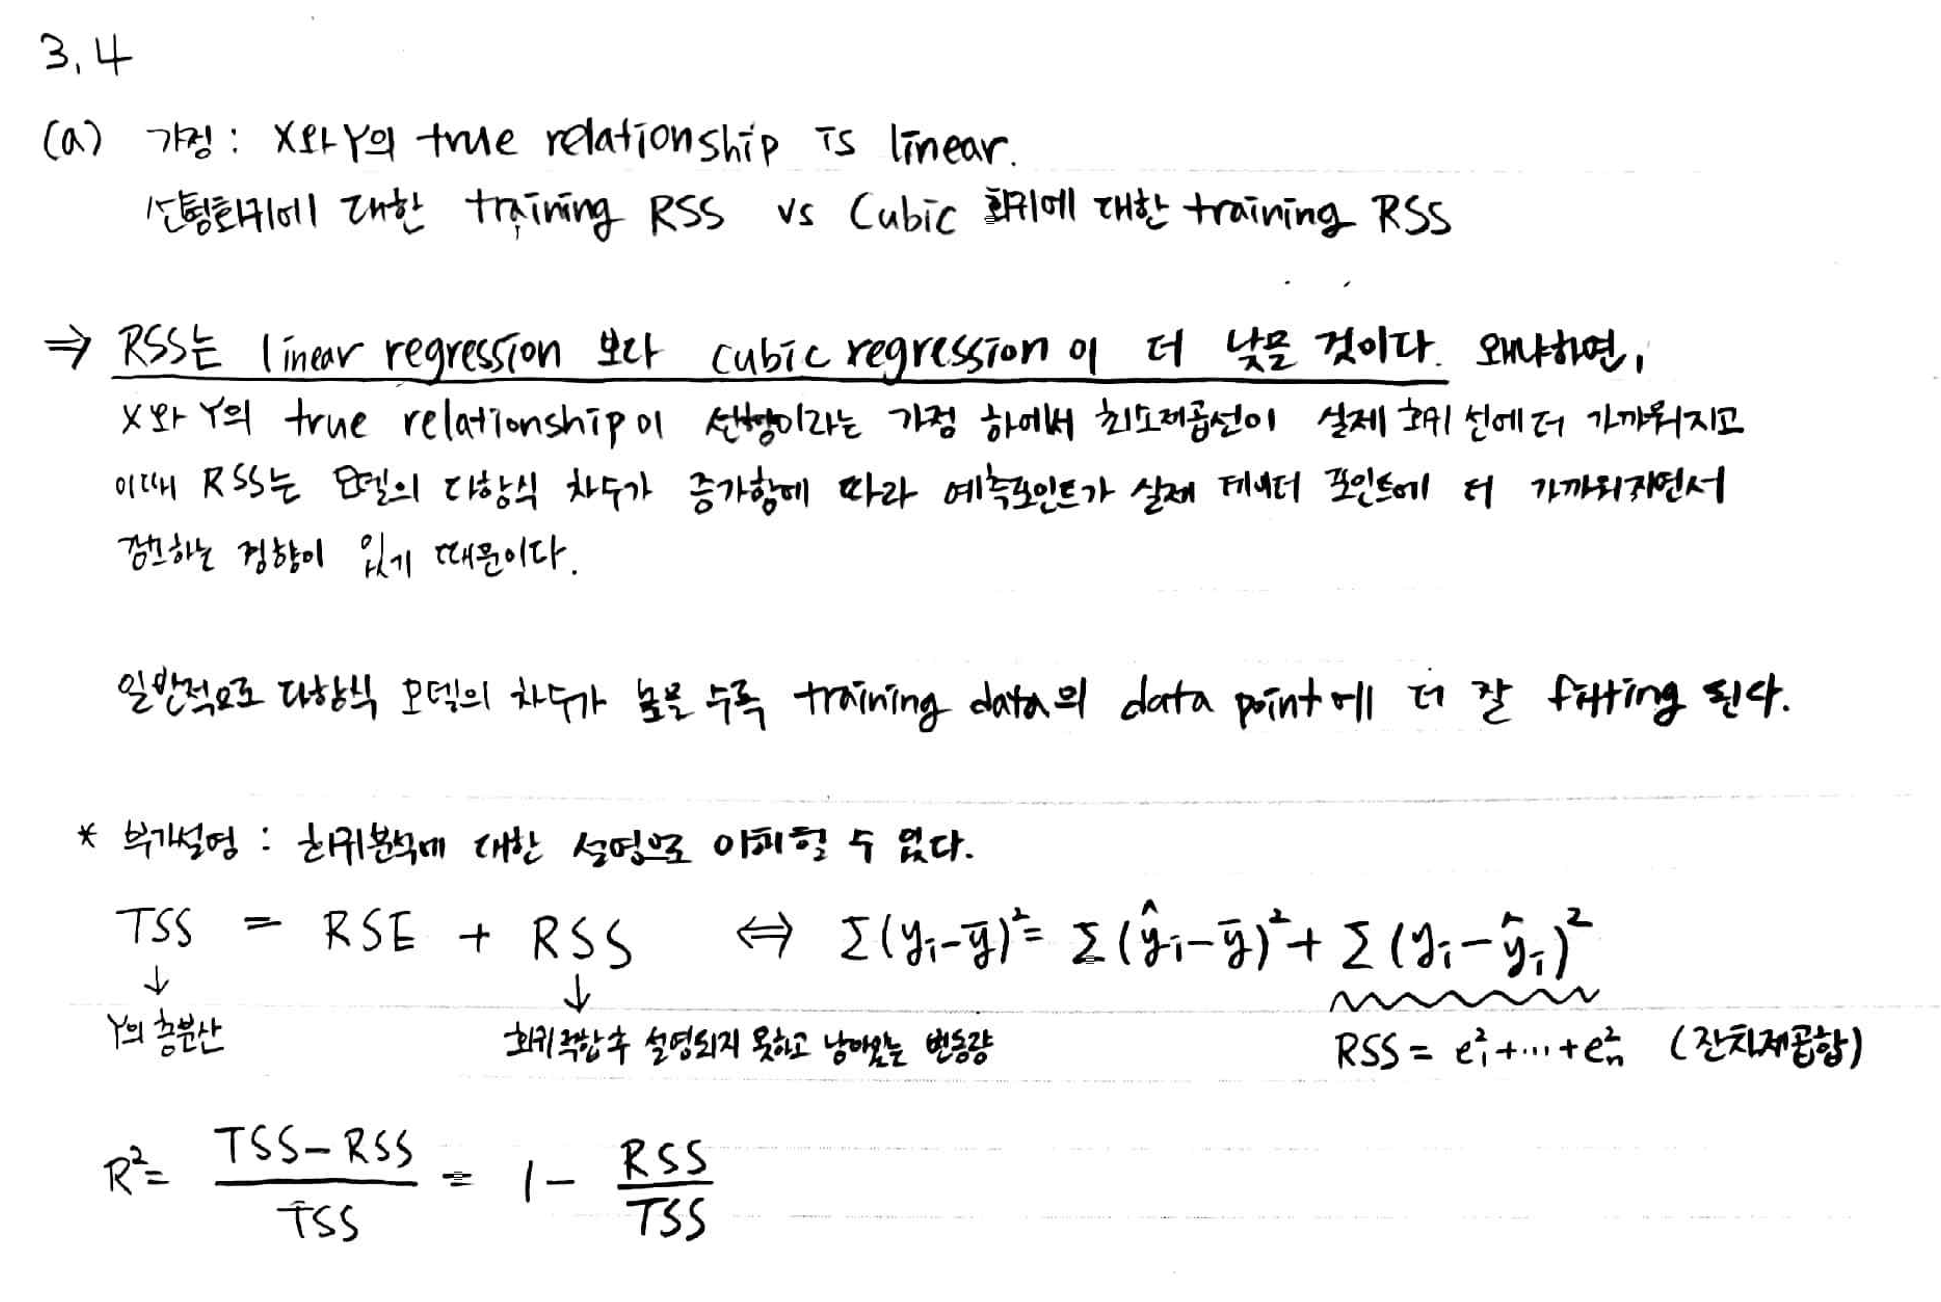 3.4
(a) 가정 : X와 Y의 true relationship is linear.
선형회귀에 대한 training RSS vs Cubic 회귀에 대한 training RSS
⇒ RSS는 linear regression 보다 cubic regression 이 더 낮을 것이다. 왜냐하면,
X와 Y의 true relationship이 선형이라는 가정 하에서 최소제곱선이 실제 회귀 선에 더 가까워지고
이때 RSS는 모델의 다항식 차수가 증가함에 따라 예측포인트가 실제 데이터 포인트에 더 가까워지면서
감소하는 경향이 있기 때문이다.
일반적으로 다항식 모델의 차수가 높을 수록 training data의 data point에 더 잘 fitting 된다.
* 부가설명 : 회귀분석에 대한 설명으로 이해할 수 있다.
TSS = RSE + RSS ⇔ Σ(yᵢ-ȳ)² = Σ(ŷᵢ-ȳ)² + Σ(yᵢ-ŷᵢ)²
↓ ↓
Y의 총분산 회귀적합 후 설명되지 못하고 남아있는 변동량 RSS = e₁²+⋯+eₙ² (잔차제곱합)
R² = (TSS-RSS)/TSS = 1 - RSS/TSS